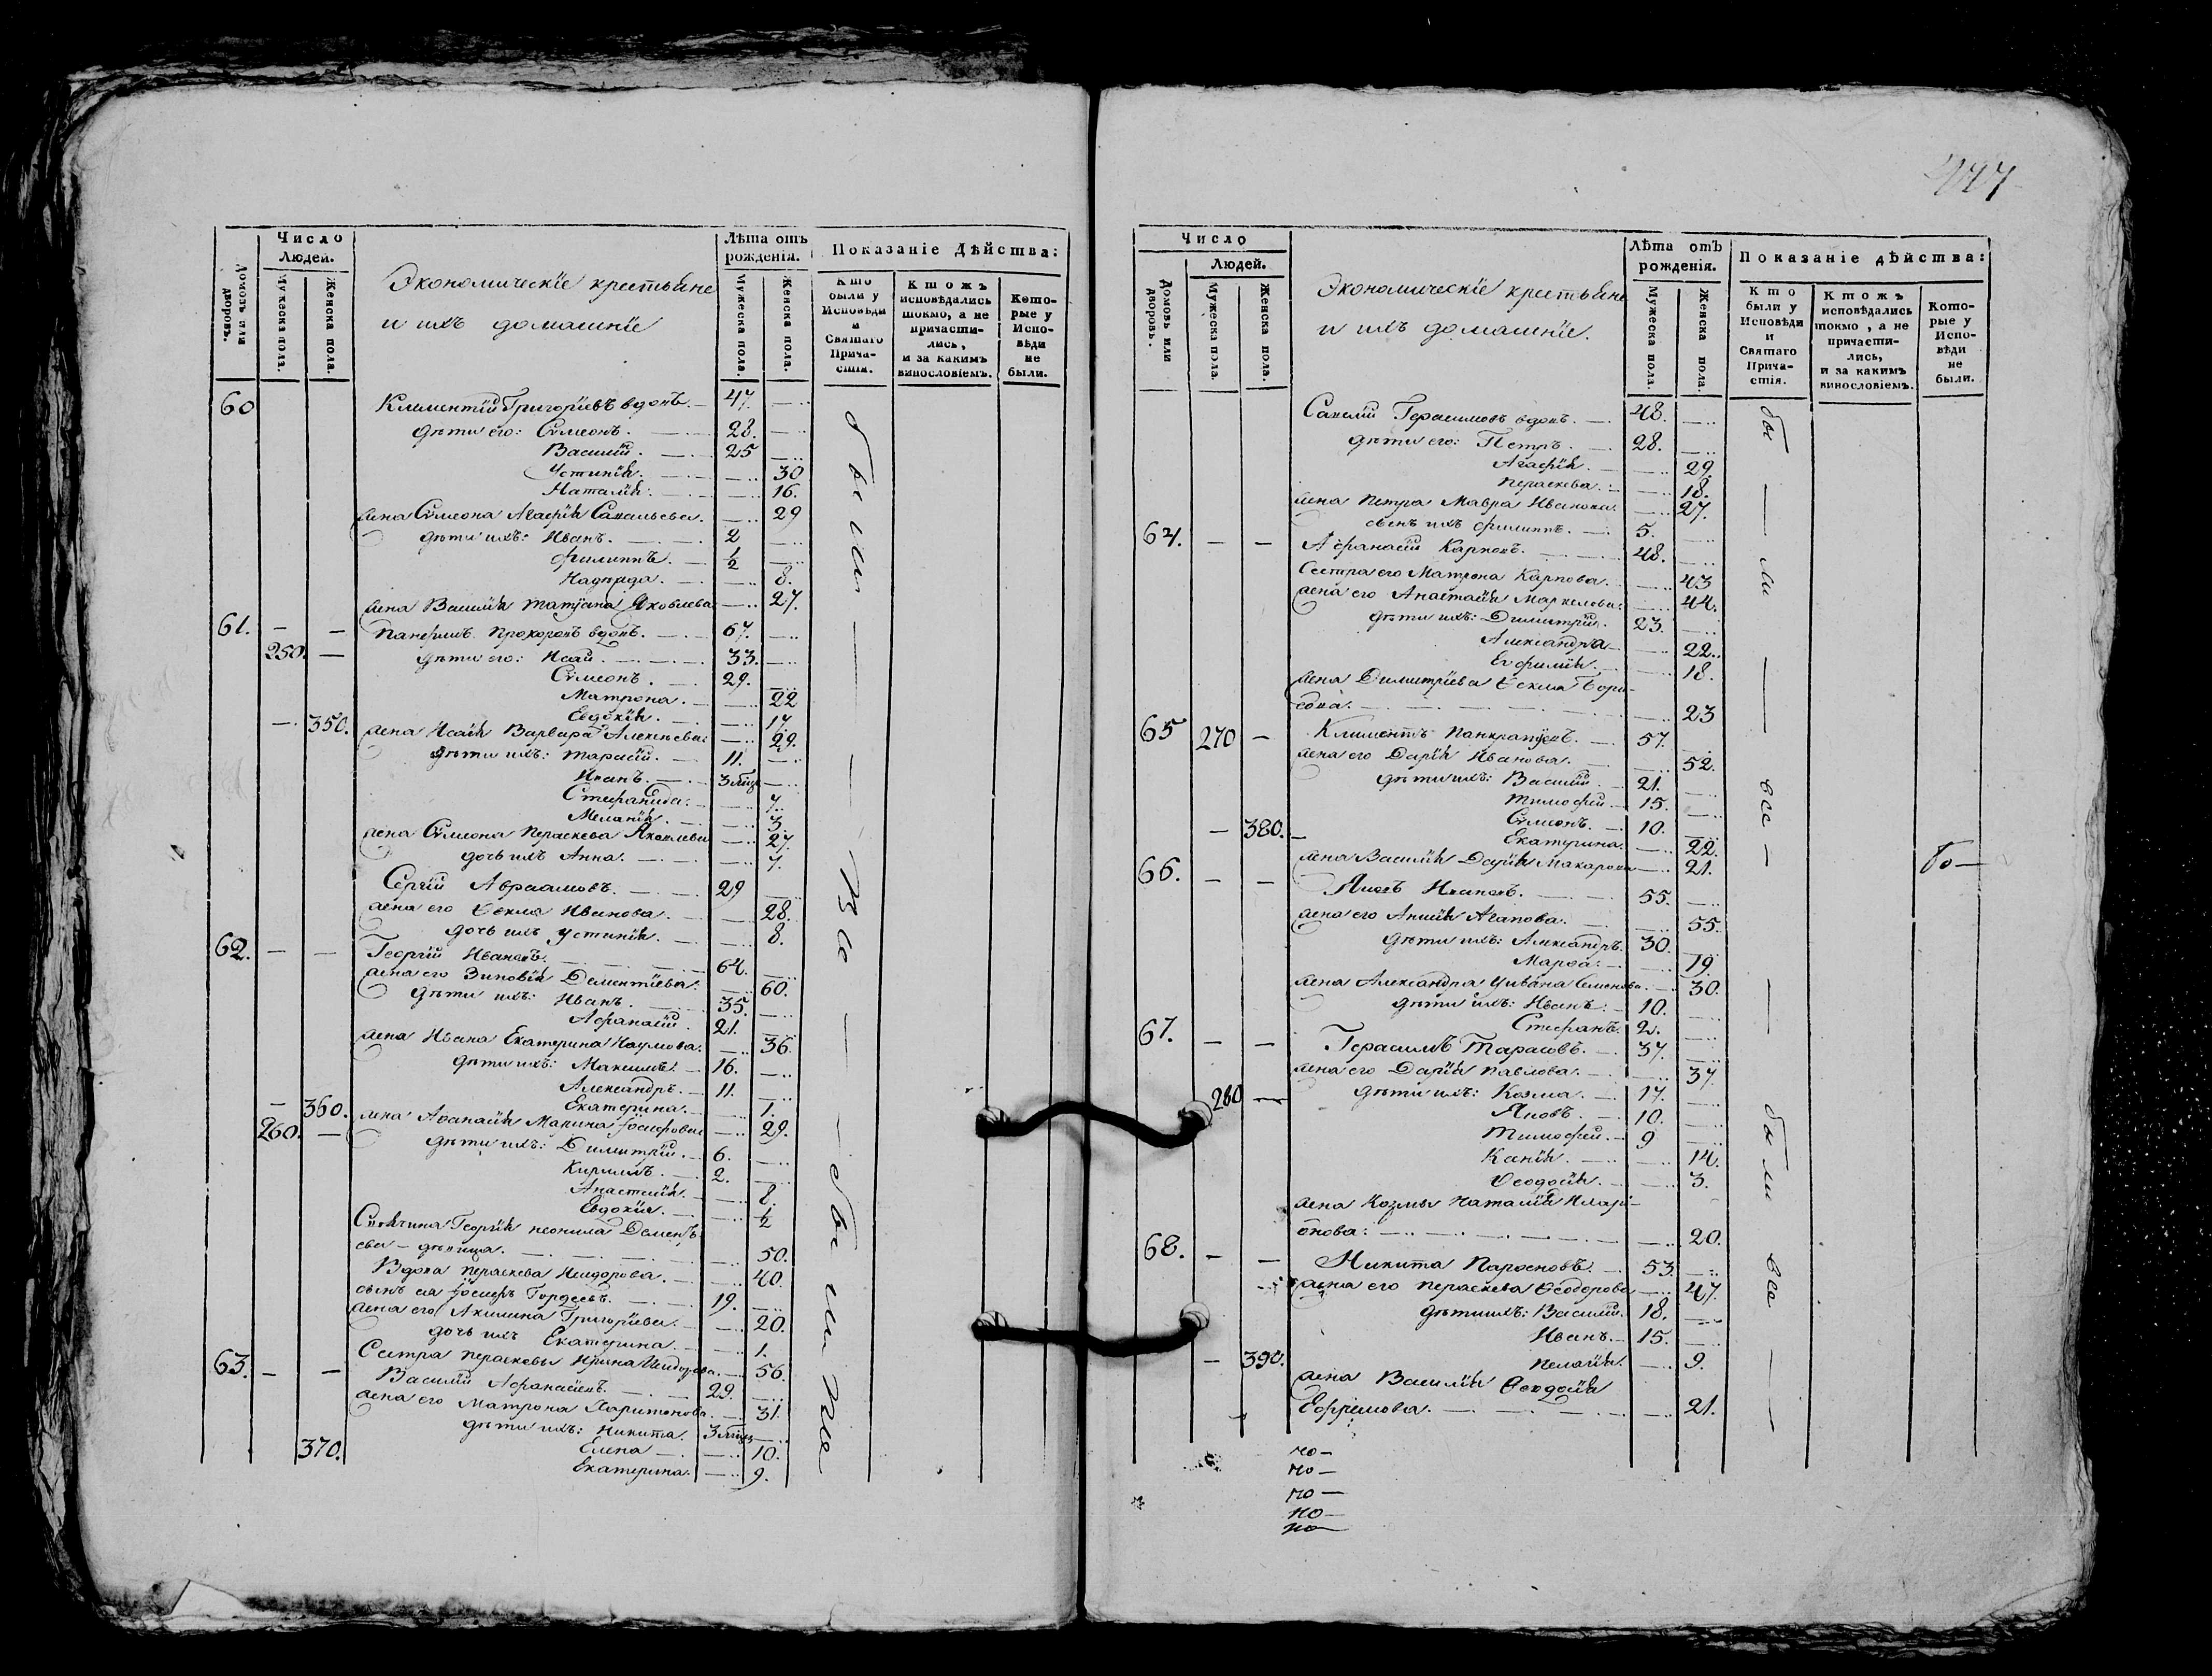 Число
Людей.
Домовъ или дворовъ.
Мужеска пола.
Женска пола.
Экономическіе крестьяне
и ихъ домашніе
Лѣта отъ
рожденія.
Мужеска пола.
Женска пола.
Показаніе Дѣйства:
Кто были у Исповѣди и Святаго Прича-стія.
Ктожъ исповѣдались токмо, а не причасти-лись, и за какимъ винословіемъ.
Кото-рые у Испо-вѣди не были.
60 Климентій Григоріевъ вдовъ. 47.
дѣти его: Сѵмеонъ. 28.
Василій. 25
Устинія. 30
Наталія. 16.
жена Сѵмеона Агафія Савельева. 29
дѣти ихъ: Иванъ. 2
Филиппъ. 1/2
Надежда. 8.
жена Василія Татіана Яковлева 27.
61. Панфилъ Прохоровъ вдовъ. 67.
250. дѣти его: Исай. 33.
Сѵмеонъ. 29.
Матрона. 22
350. Евдокія. 17.
жена Исаія Варвара Алексѣева 29.
дѣти ихъ: Тарасій. 11.
Иванъ. 3
Стефанида. 7.
Меланія. 3.
жена Сѵмеона Параскева Яковлева 27.
дочь ихъ Анна. 7.
Сергій Авраамовъ. 29
жена его Ѳекла Иванова. 28.
дочь ихъ Устинія. 8.
62. Георгій Ивановъ. 64.
жена его Зиновія Дементіева. 60.
дѣти ихъ: Иванъ. 35.
Афанасій. 21.
жена Ивана Екатерина Наумова. 36.
дѣти ихъ: Максимъ. 16.
Александръ. 11.
360. Екатерина. 1.
260. жена Афанасія Марина Іосифова 29.
дѣти ихъ: Димитрій. 6.
Кирилъ. 2.
Анастасія. 8.
Евдокія. 1/2
Георгія Неонила Демент-
ева дѣвица. 50.
Вдова Параскева Исидорова. 40.
сынъ ея Іосифъ Гордеевъ. 19.
жена его Акилина Григоріева. 20.
дочь ихъ Екатерина. 1.
Сестра Параскевы Ирина Исидорова. 56.
63. Василій Афанасіевъ. 29.
жена его Матрона Харитонова. 31.
дѣти ихъ: Никита. 3
370. Елена 10.
Екатерина. 9.
были
Все
были
Все
Число
Людей.
Домовъ или дворовъ.
Мужеска пола.
Женска пола.
Экономическіе крестьяне
и ихъ домашніе.
Лѣта отъ
рожденія.
Мужеска пола.
Женска пола.
Показаніе дѣйства:
Кто были у Исповѣди и Святаго Прича-стія.
Ктожъ исповѣдались токмо, а не причасти-лись, и за какимъ винословіемъ.
Кото-рые у Испо-вѣди не были.
Савелій Герасимовъ вдовъ. 48.
дѣти его: Петръ. 28.
Агафія. 29.
Параскева. 18.
жена Петра Мавра Иванова. 27.
сынъ ихъ Филиппъ. 5.
64. Афанасій Карповъ. 48.
Сестра его Матрона Карпова. 43
жена его Анастасія Маркелова. 44.
дѣти ихъ: Димитрій. 23.
Александра 22.
Евфимія. 18.
жена Димитріева Ѳекла Бори-
сова. 23
65 270 Климентъ Панкратіевъ. 57.
жена его Дарія Иванова. 52.
дѣти ихъ: Василій 21.
Тимофей 15.
Сѵмеонъ. 10.
380. Екатерина. 22.
жена Василія Дарія Макарова 21.
66. Яковъ Ивановъ. 55.
жена его Анисія Агапова. 55.
дѣти ихъ: Александръ. 30.
Марѳа. 19.
жена Александра Уліана Семенова. 30.
дѣти ихъ: Иванъ. 10.
Стефанъ. 2.
67. Герасимъ Тарасовъ. 37.
жена его Дарія Павлова. 37.
280 дѣти ихъ: Козма. 17.
Яковъ. 10.
Тимофей. 9
Ксенія. 14.
Ѳеодосія. 3.
жена Козмы Наталія Илларі-
онова: 20.
68. Никита Парѳеновъ. 53.
жена его Параскева Ѳеодорова 47.
дѣти ихъ: Василій. 18.
Иванъ. 15.
390. Пелагія. 9.
жена Василія Ѳеодосія
Ефремова. 21.
бы
ли
все
были
все